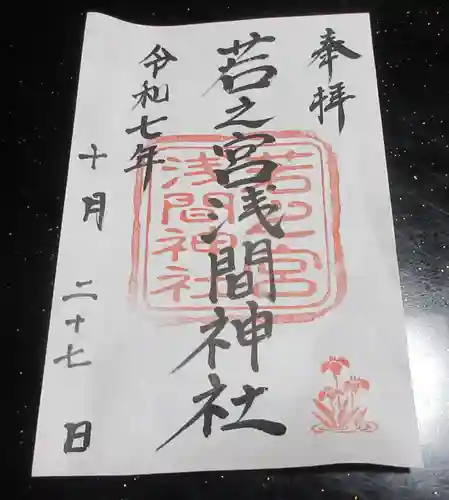 奉拝
若之宮浅間神社
若之宮
浅間神社
令和七年
十月
二十七日